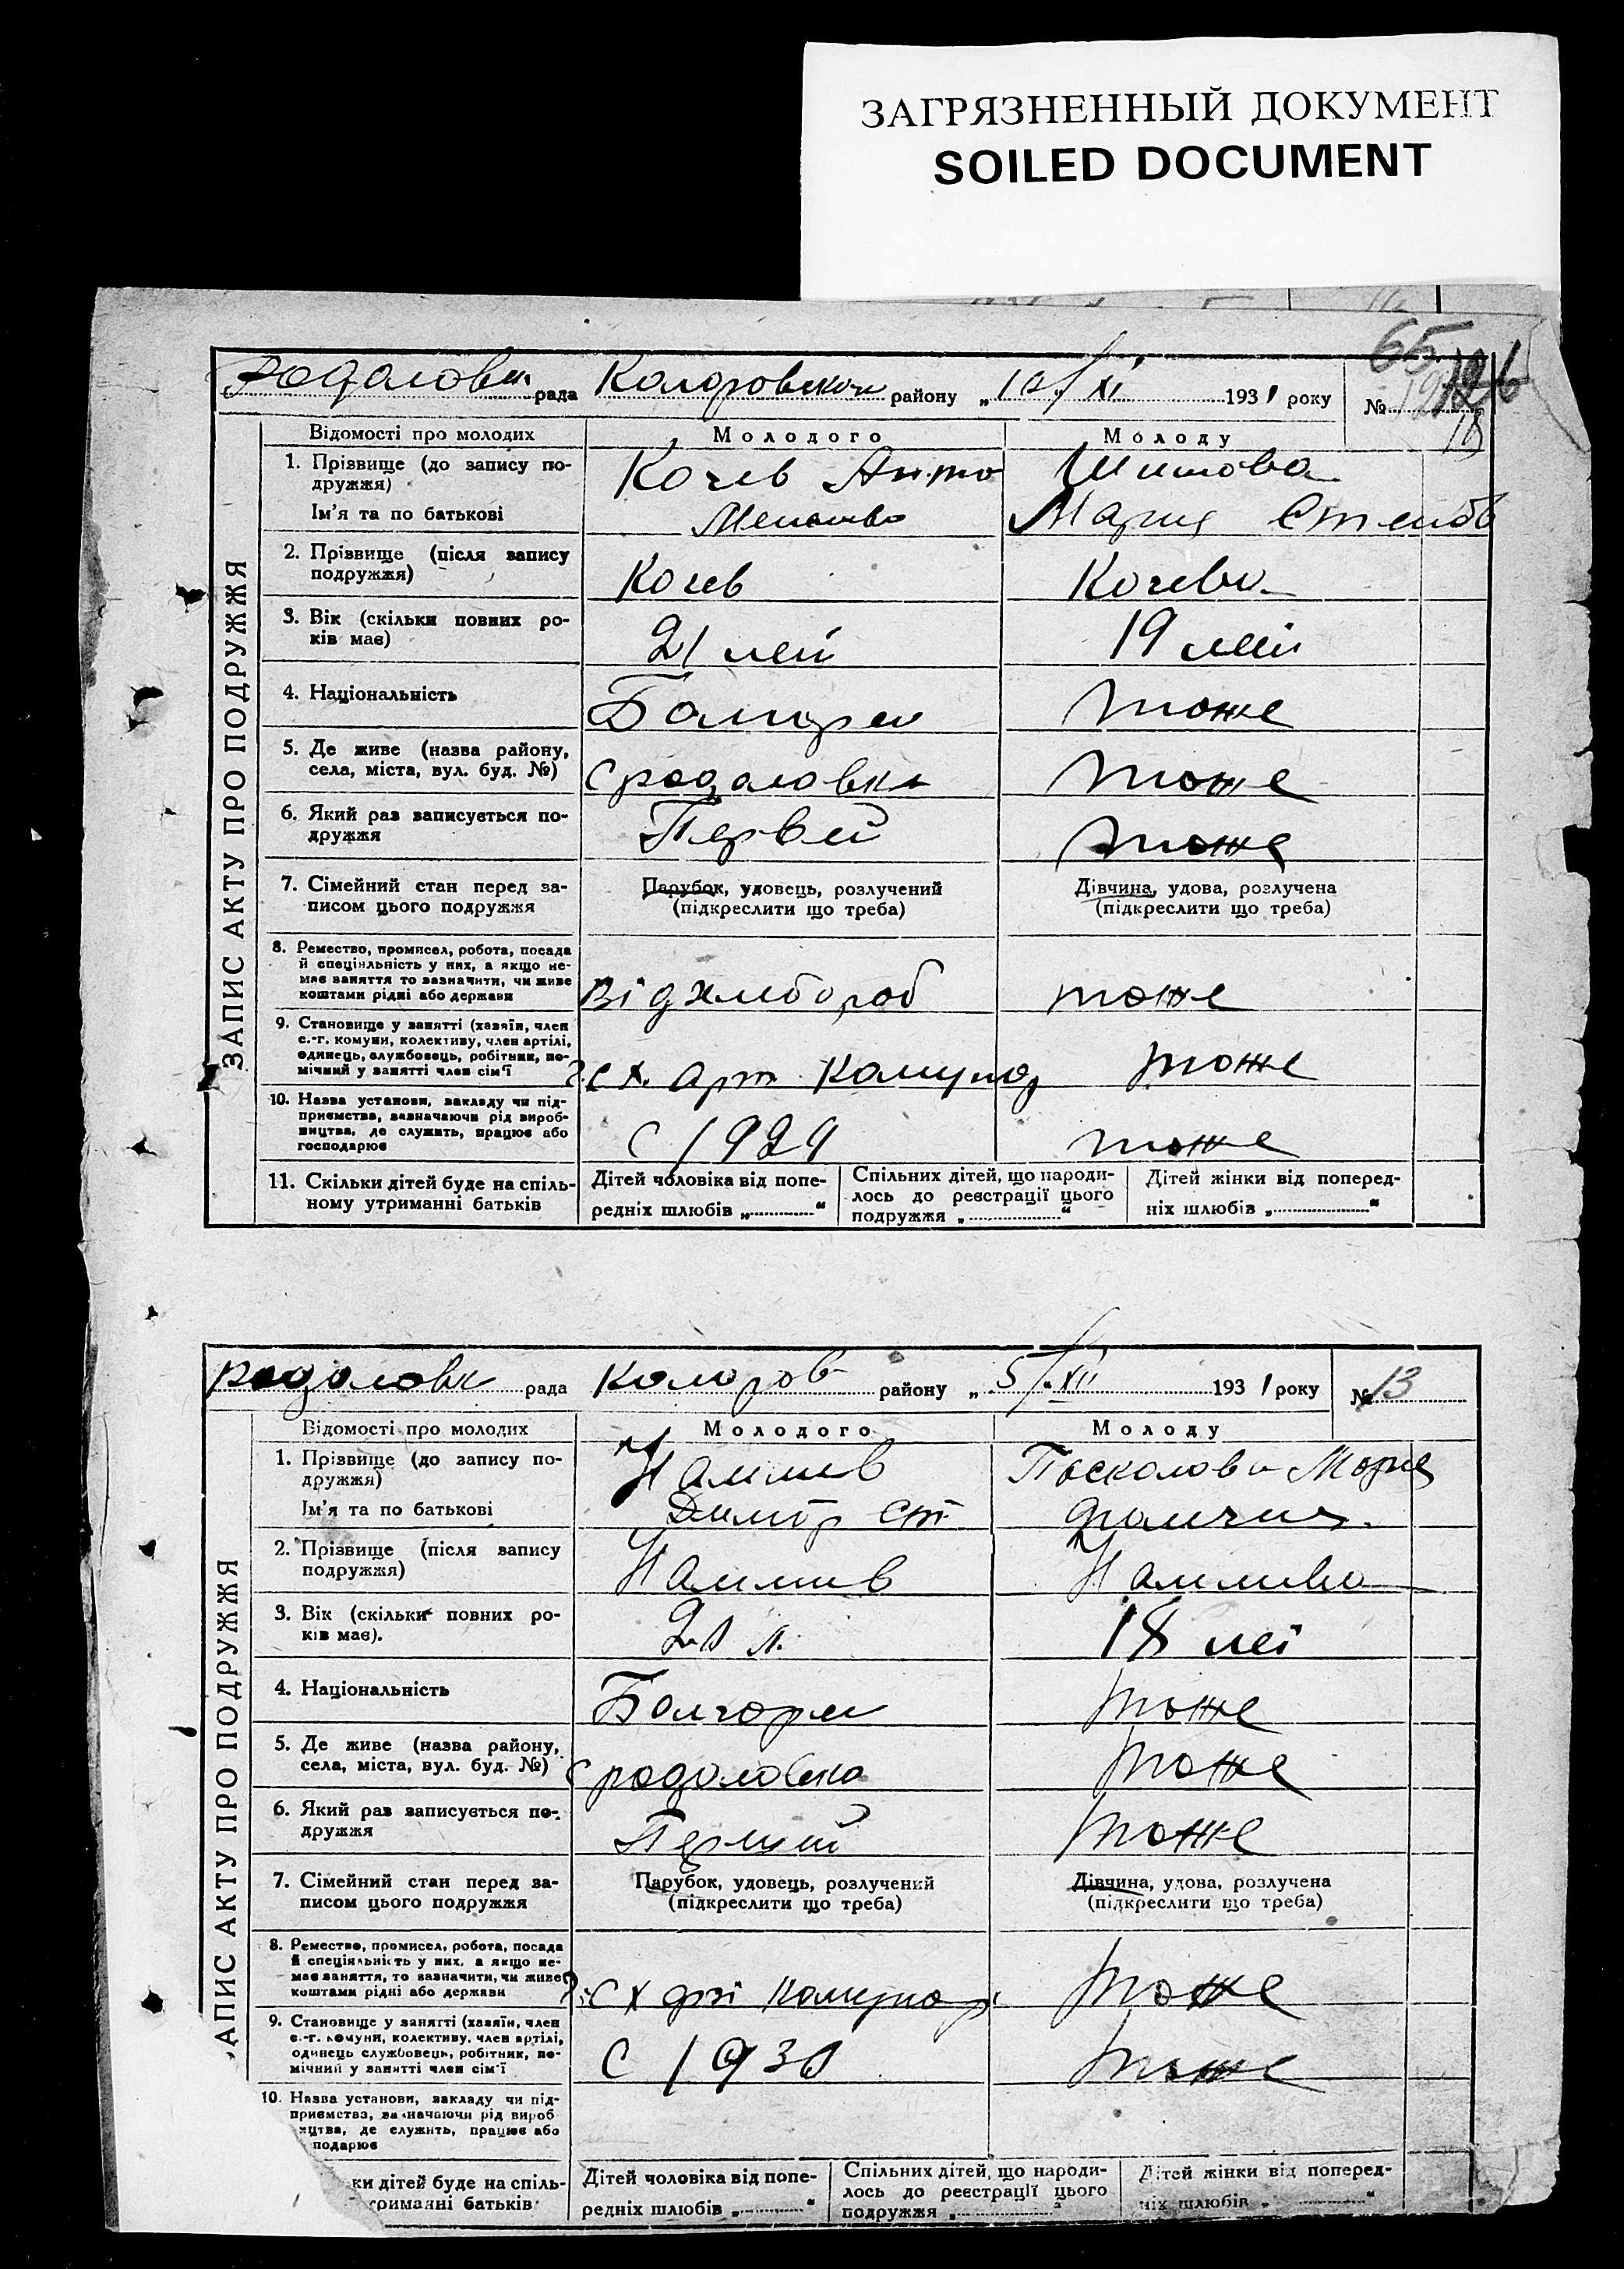 ЗАГРЯЗНЕННЫЙ ДОКУМЕНТ
SOILED DOCUMENT
65
рада району „ XI 1931 року №
Відомості про молодих Молодого Молоду
ЗАПИС АКТУ ПРО ПОДРУЖЖЯ
1. Прізвище (до запису по-
дружжя)
Ім'я та по батькові
Кочев
Шишова
Мария
2. Прізвище (після запису
подружжя)
Кочев
Кочева
3. Вік (скільки повних ро-
ків має)
21 лей
19 лей
4. Національність
тоже
5. Де живе (назва району,
села, міста, вул. буд. №)
с родоловка
тоже
6. Який раз записується по-
дружжя
Первей
тоже
7. Сімейний стан перед за-
писом цього подружжя
Парубок, удовець, розлучений
(підкреслити що треба)
Дівчина, удова, розлучена
(підкреслити що треба)
8. Ремество, промисел, робота, посада
й спеціяльність у них, а якщо не-
має заняття то зазначити, чи живе
коштами рідні або держави
хлебороб
тоже
9. Становище у занятті (хазяїн, член
с.-г. комуни, колективу, член артілі,
одинець, службовець, робітник, по-
мічний у занятті член сім'ї
с х. арт Комунар
тоже
10. Назва установи, закладу чи під-
приємства, зазначаючи рід вироб-
ництва, де служить, працює або
господарює
с 1929
тоже
11. Скільки дітей буде на спіль-
ному утриманні батьків
Дітей чоловіка від попе-
редніх шлюбів „ “
Спільних дітей, що народи-
лось до реєстрації цього
подружжя „ “
Дітей жінки від поперед-
ніх шлюбів „ “
родоловк рада Коларов району „ 5/XII 1931 року № 13
Відомості про молодих Молодого Молоду
АПИС АКТУ ПРО ПОДРУЖЖЯ
1. Прізвище (до запису по-
дружжя)
Ім'я та по батькові
Пасколова Мария
Димитр Ст
2. Прізвище (після запису
подружжя)
3. Вік (скільки повних ро-
ків має).
л.
18 леі
4. Національність
Болгоры
тоже
5. Де живе (назва району,
села, міста, вул. буд. №)
с родоловка
тоже
6. Який раз записується по-
дружжя
тоже
7. Сімейний стан перед за-
писом цього подружжя
Парубок, удовець, розлучений
(підкреслити що треба)
Дівчина, удова, розлучена
(підкреслити що треба)
8. Ремество, промисел, робота, посада
й спеціяльність у них, а якщо не-
має заняття, то зазначити, чи живе
коштами рідні або держави
с х Комунар
тоже
9. Становище у занятті (хазяїн, член
с.-г. комуни, колективу, член артілі,
одинець службовець, робітник, по-
мічний у занятті член сім'ї
тоже
10. Назва установи, закладу чи під-
приємства, зазначаючи рід вироб
ицтва, де служить, працює або
подарює
ки дітей буде на спіль-
триманні батьків
Дітей чоловіка від попе-
редніх шлюбів „ “
Спільних дітей, що народи-
лось до реєстрації цього
подружжя „ “
Дітей жінки від поперед-
ніх шлюбів „ “